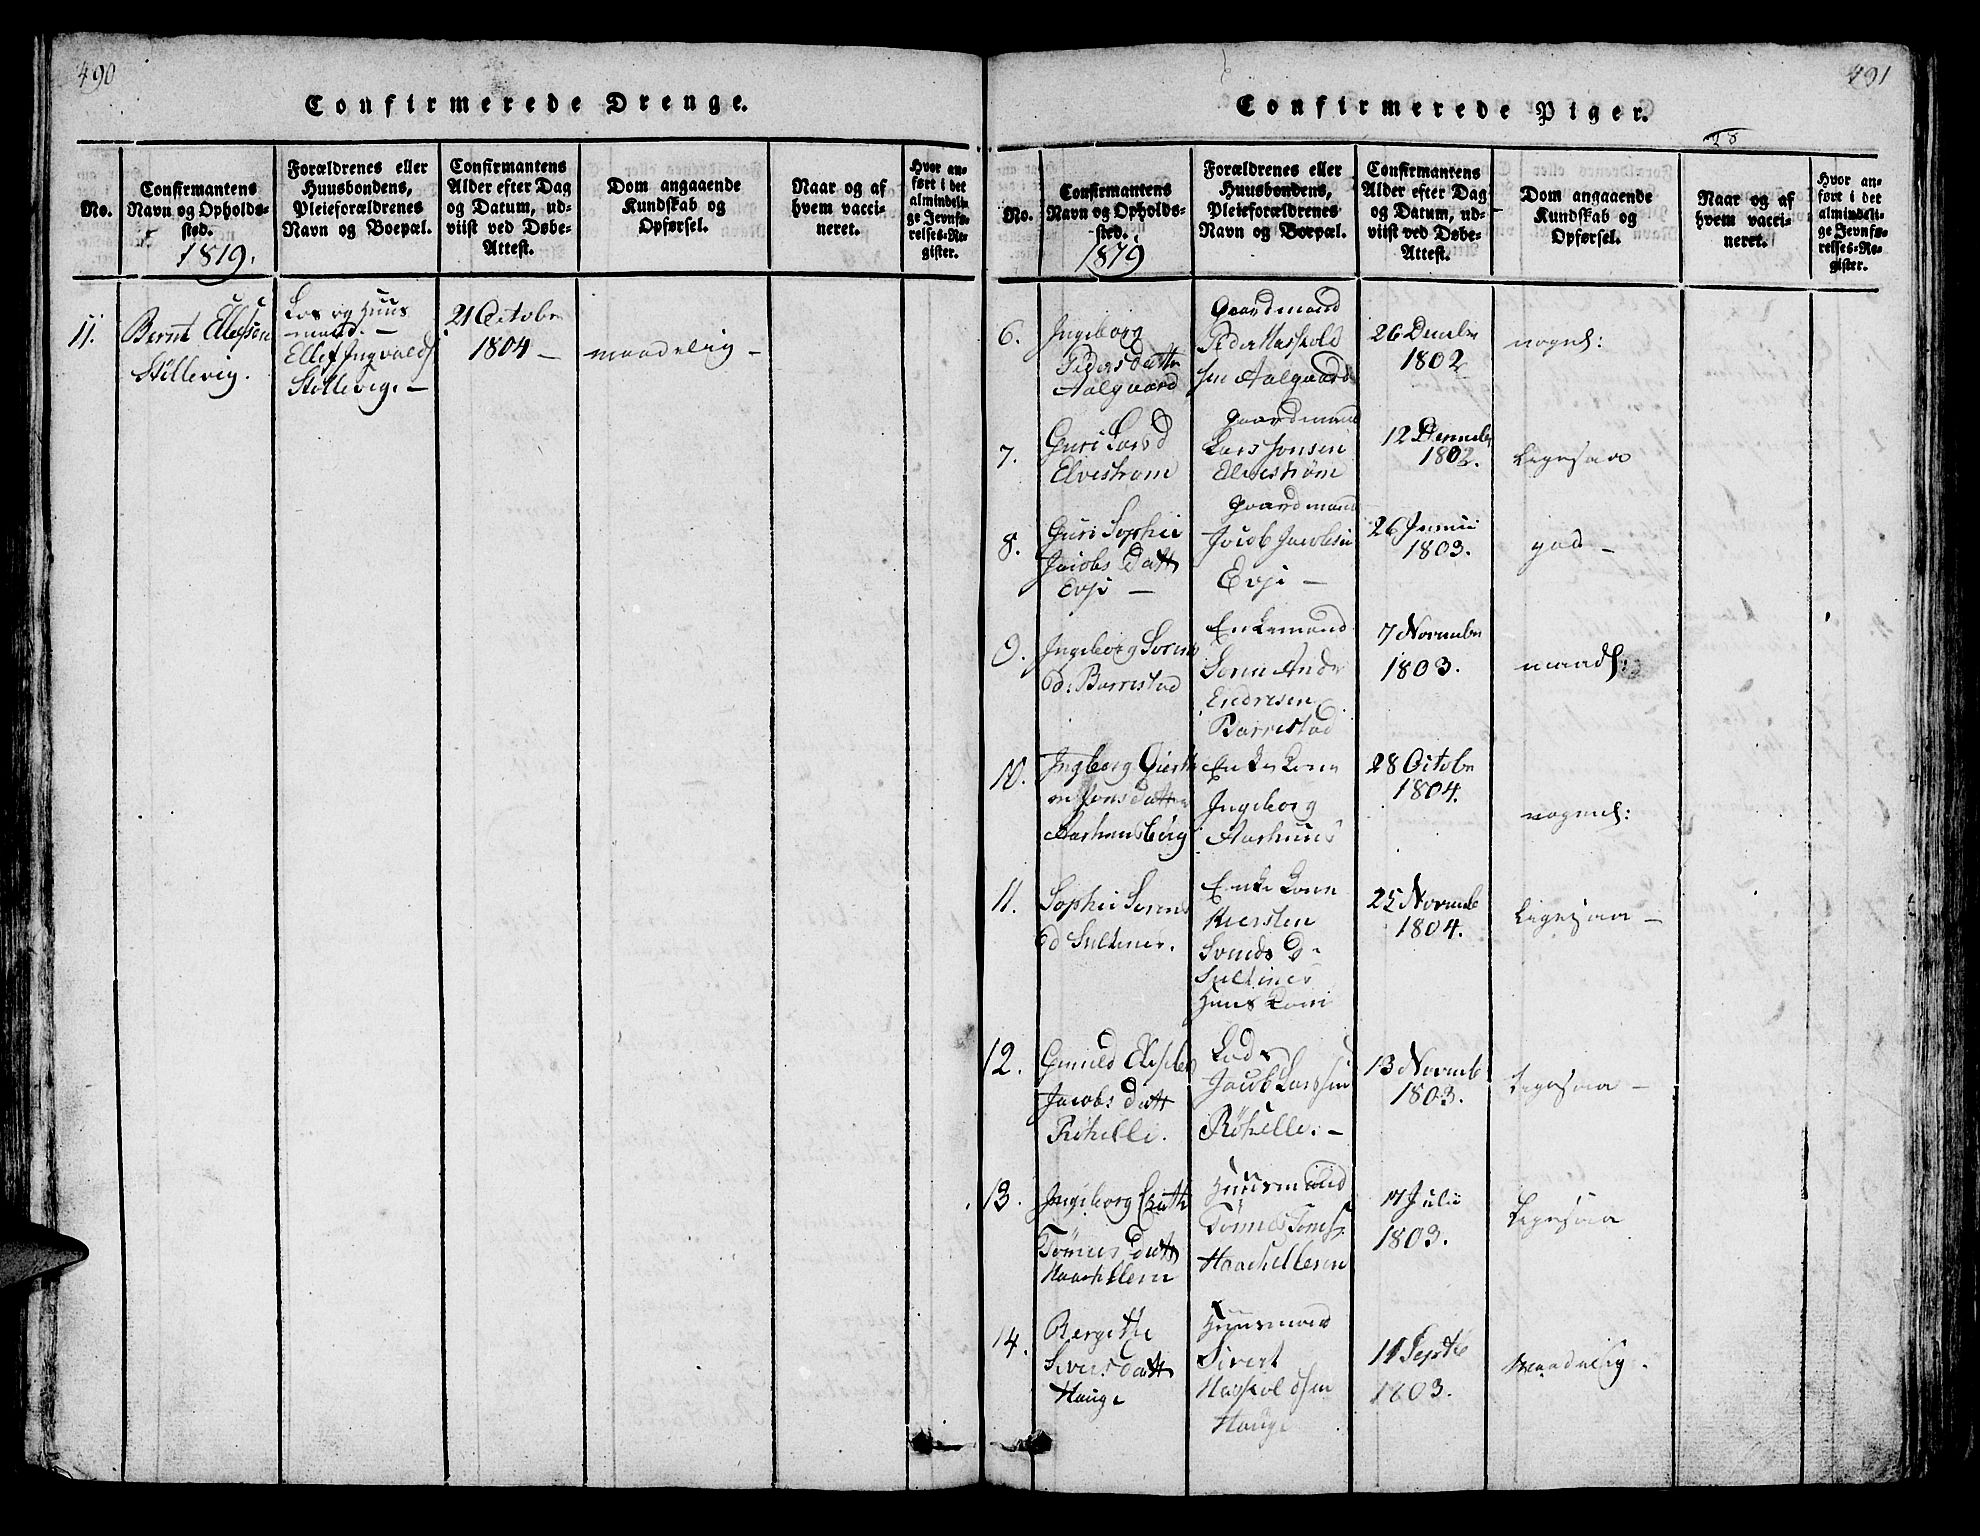 490
Confirmerede Drenge.
No.
Confirmantens
Navn og Opholds-
sted.
1819.
Forældrenes eller
Huusbondens,
Pleieforældrenes
Navn og Boepæl.
Confirmantens
Alder efter Dag
og Datum, ud-
viist ved Døbe-
Attest.
Dom angaaende
Kundskab og
Opførsel.
Naar og af
hvem vacci-
neret.
Hvor an-
ført i det
almindeli-
ge Jevnfø-
relses-Re-
gister.
11.
Bernt Ellefsen
Stillevig.
Los og Huus
mand. —
Ellef Ingvalds
Stillevig. —
21 Octobr
1804 —
maadelig —
491
Confirmerede Piger.
28
No.
Confirmantens
Navn og Opholds-
sted.
1819
Forældrenes eller
Huusbondens,
Pleieforældrenes
Navn og Boepæl.
Confirmantens
Alder efter Dag
og Datum, ud-
viist ved Døbe-
Attest.
Dom angaaende
Kundskab og
Opførsel.
Naar og af
hvem vacci-
neret.
Hvor an-
ført i det
almindeli-
ge Jevnfø-
relses-Re-
gister.
6.
Ingeborg
Peders Datt
Aalgaard
Gaardmand
Peder
sen Aalgaard
26 Decmbr
1802
nogel:
7.
Guri Lars d
Elvestrøm
Gaardmand
Lars Jonsen
Elvestrøm
12 Decembr
1802.
Ligesaa
8.
Guri Sophie
Jacobs Datt
Evje —
Gaardmand
Jacob Jacobsen
Evje —
26 Junii
1803.
god —
9.
Ingeborg Soren
d: Barrestad
Enkemand
Soren Andr
Endresen
Barrestad
7 Novembr
1803.
maadl:
10.
Ingborg Gurth
Jens Datt
Aashuusberg
Enke Kone
Ingeborg
Aashuus
28 Octobr
1804.
nogel:
11.
Sophie Sorens
d
Enke Kone
Kiersten
Svends D
Huus Kone
25 Novemb
1804.
Ligesaa —
12.
Gunild
Jacobs Datt
Røkelle.
Lods
Jacob Larssen
Røkelle. —
13 Novemb
1803.
Ligesaa —
13.
Ingeborg
Tønnes Datt
Huusmand
Tønnes
17 Julii
1803.
Ligesaa
14.
Bergethe
Sivers Datt
Hauge
Huusmand
Sivert
Haskoldsen
Hauge
11 Septb
1803.
maadelig